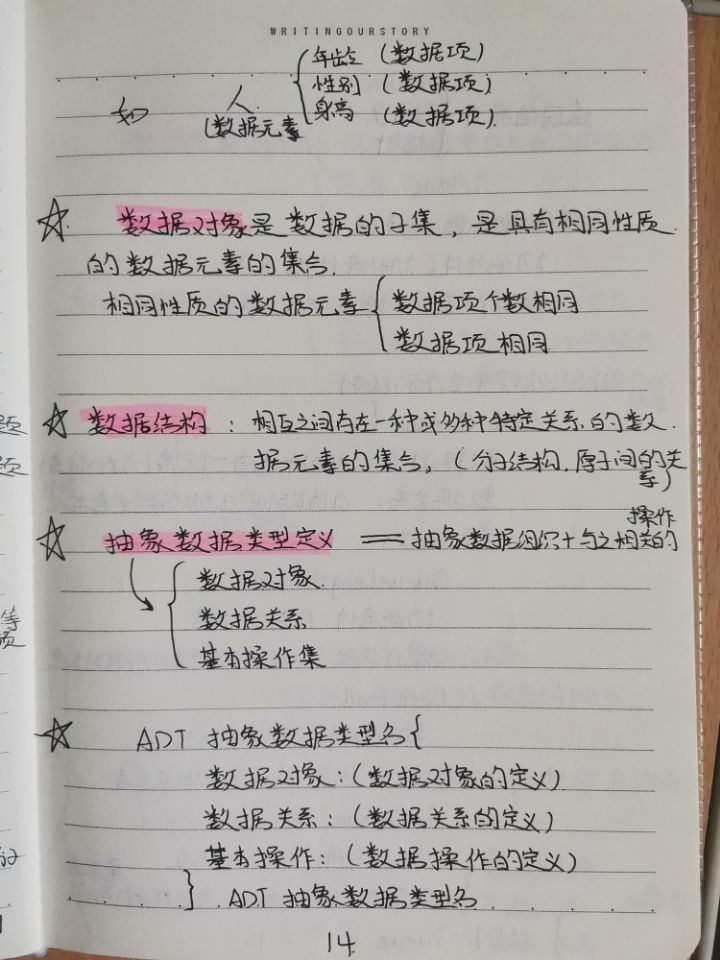 WRITINGOURSTORY
年龄 (数据项)
性别 (数据项)
如 人 身高 (数据项)
(数据元素
数据对象是数据的子集，是具有相同性质
的数据元素的集合.
相同性质的数据元素 { 数据项个数相同
数据项相同
数据结构：相互之间存在一种或多种特定关系的数
据元素的集合，(分子结构.原子间的关
系)
抽象数据类型定义 = 抽象数据组织+与之相关的
操作
数据对象
数据关系
基本操作集
ADT 抽象数据类型名{
数据对象：(数据对象的定义)
数据关系：(数据关系的定义)
基本操作：(数据操作的定义)
} ADT 抽象数据类型名
14
题
题
等
项